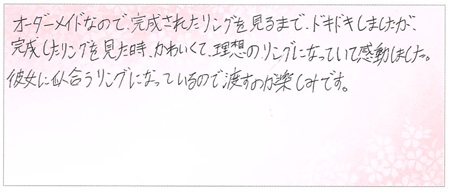 オーダーメイドなので、完成されたリングを見るまで、ドキドキしましたが、
完成したリングを見た時、かわいくて、理想のリングになっていて感動しました。
彼女に似合うリングになっているので渡すのが楽しみです。